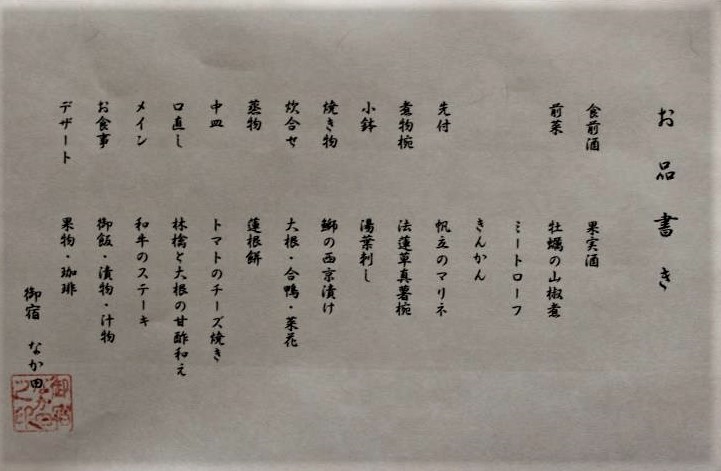 お品書き
食前酒　果実酒
前菜　牡蠣の山椒煮
ミートローフ
きんかん
先付　帆立のマリネ
煮物椀　法蓮草真薯椀
小鉢　湯葉刺し
焼き物　鰤の西京漬け
炊合せ　大根・合鴨・菜花
蒸物　蓮根餅
中皿　トマトのチーズ焼き
口直し　林檎と大根の甘酢和え
メイン　和牛のステーキ
お食事　御飯・漬物・汁物
デザート　果物・珈琲
御宿　なか田
御宿
なか田
之印